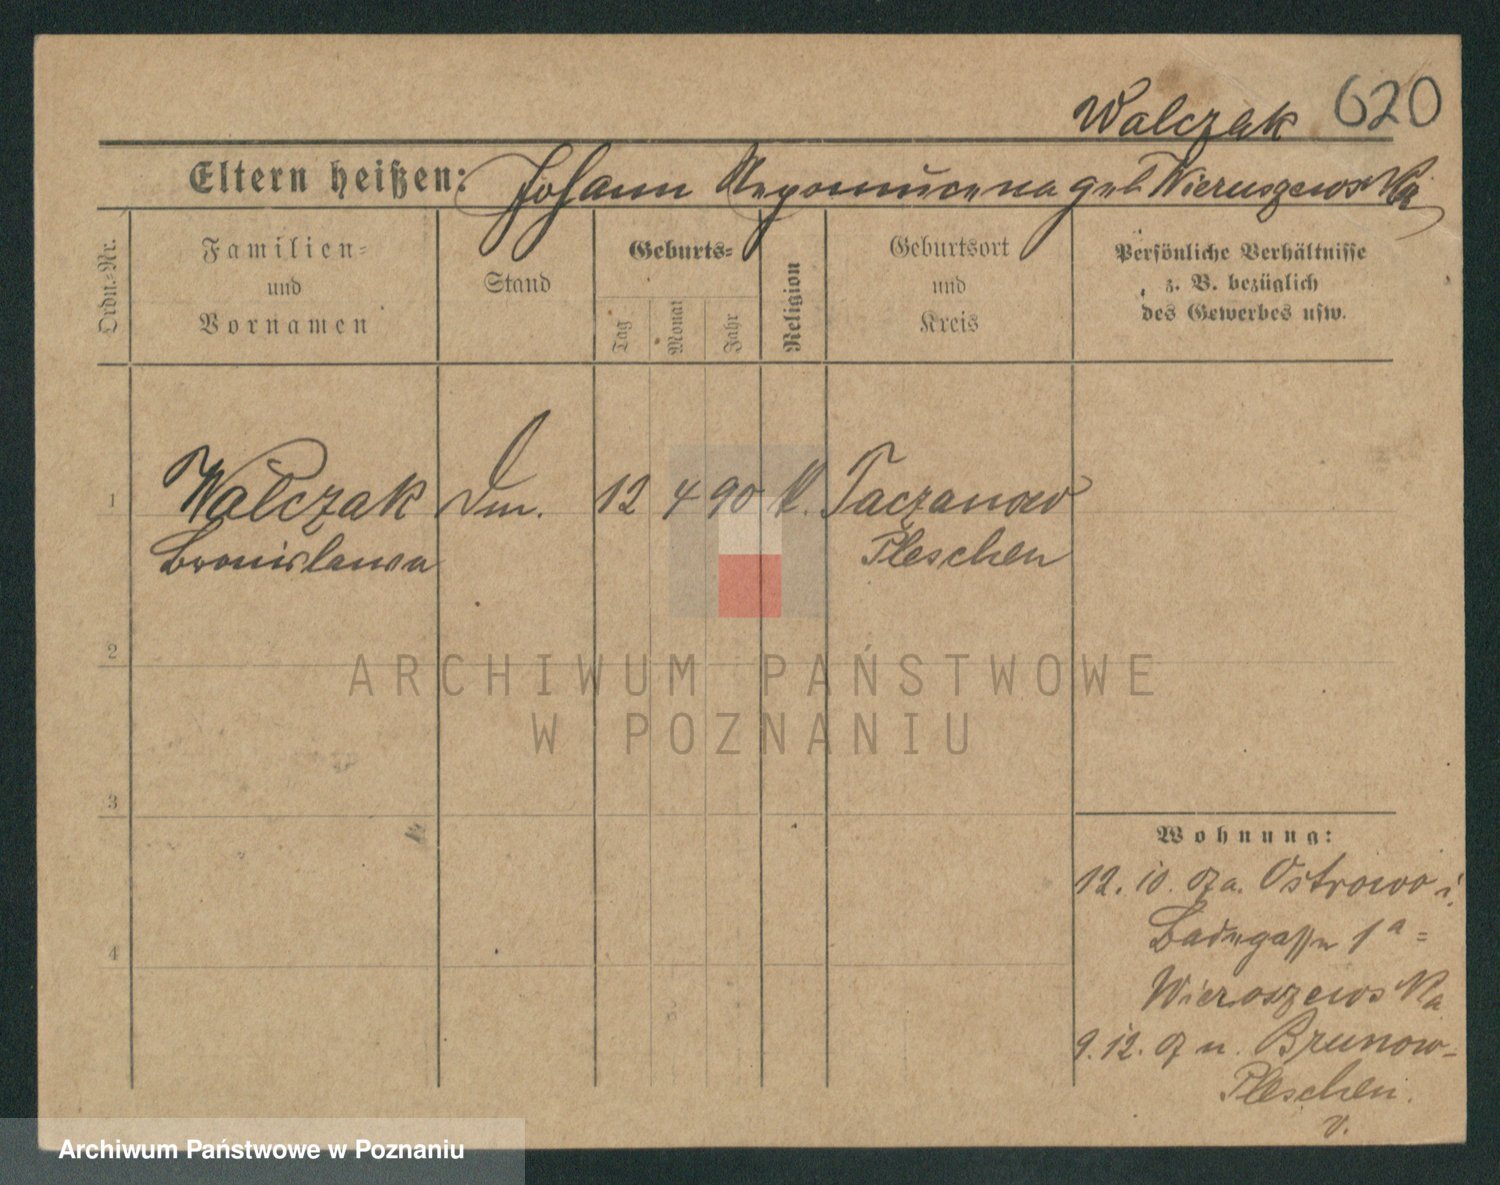 Walczak 620
Eltern heißen: Johann Nepomucena geb Wieruszewska
Ordn.-Nr.
Familien-
und
Vornamen
Stand
Geburts-
Tag
Monat
Jahr
Religion
Geburtsort
und
Kreis
Persönliche Verhältnisse
z. B. bezüglich
des Gewerbes usw.
1 Walczak Dm. 12 4 90 K. Taczanow
Bronislawa Pleschen
2
ARCHIWUM PAŃSTWOWE
W POZNANIU
3
Wohnung:
12. 10. 07 a. Ostrowo i.
Badegasse 1a =
Wieroszewska
4
9. 12. 07 n. Brunow-
Pleschen.
v.
Archiwum Państwowe w Poznaniu